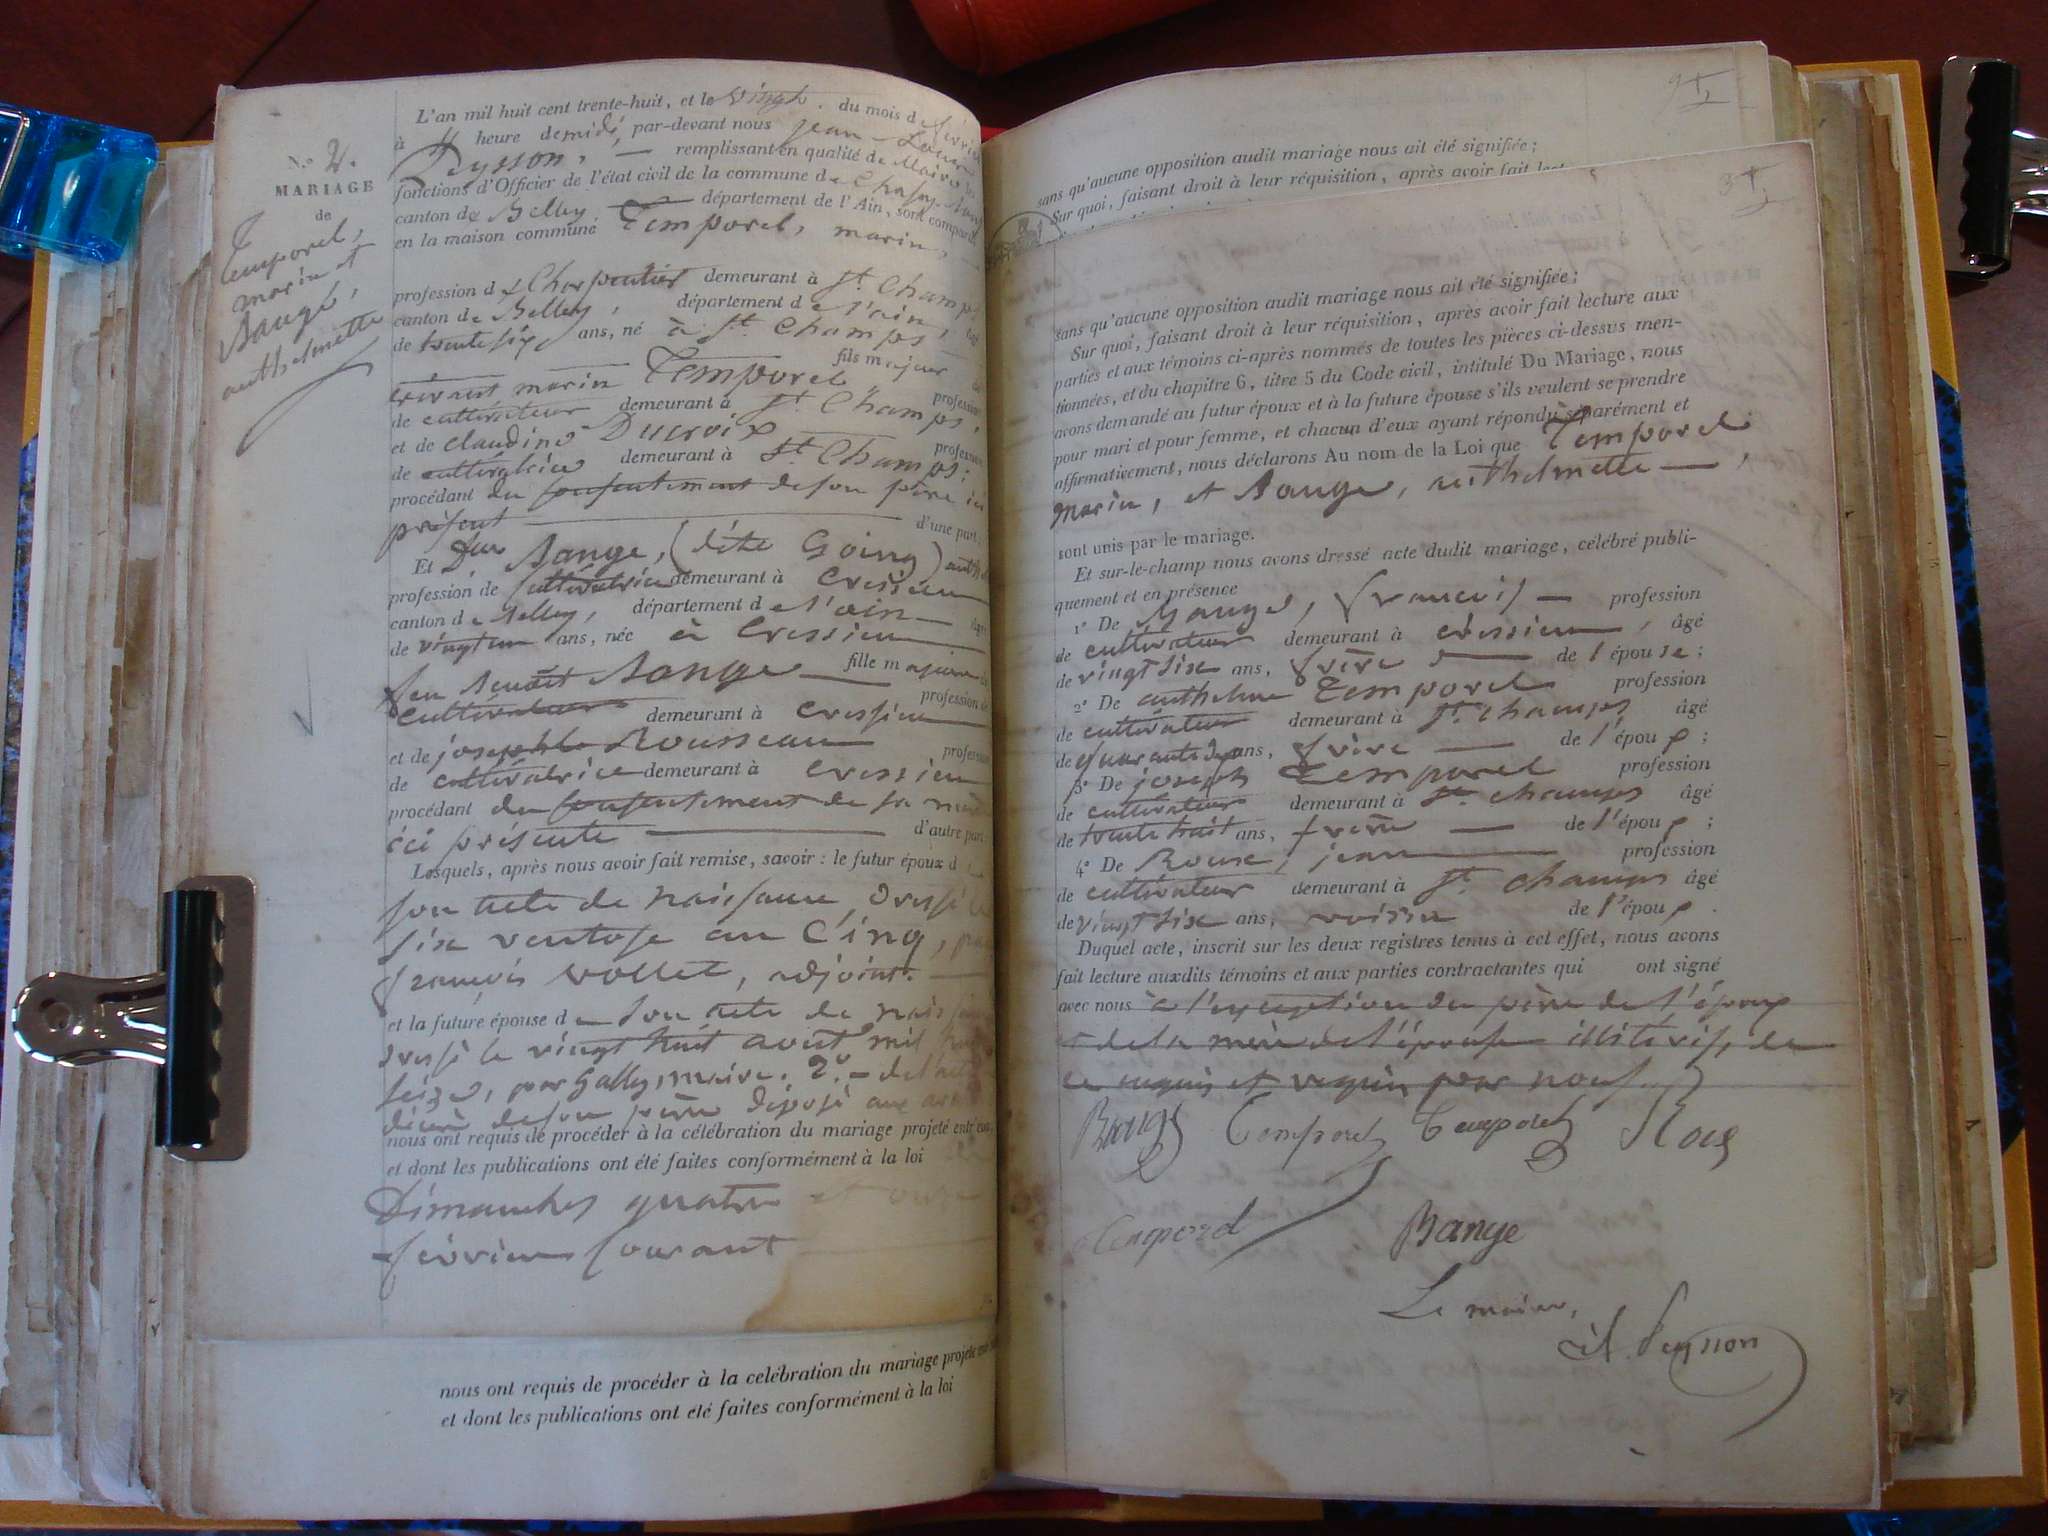 N.o 2.
MARIAGE
de
Temporel,
marin et
Bange,
anthelmette
L'an mil huit cent trente-huit, et le vingt. du mois de février
à heure de midi, par-devant nous jean Louis
Peysson, — remplissant en qualité de Maire les
fonctions d'Officier de l'état civil de la commune de
canton de Belley. département de l'Ain, sont comparus
en la maison commune Temporel, marin,
profession de Charpentier demeurant à St. Champs
canton de Belley, département de l'ain,
de trente six ans, né à St Champs
fils majeur
vivant marin Temporel profession
de cultivateur demeurant à St Champs,
et de claudine Ducroix profession
de cultivatrice demeurant à St. Champs;
procédant du consentement de son père ici
présent — d'une part.
Et Dlle Bange, (dite Going)
profession de Cultivatrice demeurant à Cressieu
canton de Belley, département de l'ain —
de vingt un ans, née à Cressieu
fille majeure
feu Benoît Bange — profession de
cultivateur demeurant à Cressieu
et de josephte Rousseau profession
de cultivatrice demeurant à Cressieu
procédant du consentement de sa mère
ici présente — d'autre part
Lesquels, après nous avoir fait remise, savoir : le futur époux d
son acte de naissance, dressé le
six ventose an Cinq,
françois vollet, adjoint.
et la future épouse de son acte de naissance
dressé le vingt huit août mil huit
seize, par Gally, maire. 2.o — de l'acte
décès de son père déposé aux
nous ont requis de procéder à la célébration du mariage projeté entr'eux,
et dont les publications ont été faites conformément à la loi
Dimanches quatre et onze
février courant
nous ont requis de procéder à la celébration du mariage projeté
et dont les publications ont été faites conformément à la loi
sans qu'aucune opposition audit mariage nous ait été signifiée ;
Sur quoi, faisant droit à leur réquisition, après avoir fait lect
sans qu'aucune opposition audit mariage nous ait été signifiée ;
Sur quoi, faisant droit à leur réquisition, après avoir fait lecture aux
parties et aux témoins ci-après nommés de toutes les pièces ci-dessus men-
tionnées, et du chapitre 6, titre 5 du Code civil, intitulé Du Mariage, nous
avons demandé au futur époux et à la future épouse s'ils veulent se prendre
pour mari et pour femme, et chacun d'eux ayant répondu séparément et
affirmativement, nous déclarons Au nom de la Loi que Temporel
marin, et Bange, anthelmette —,
sont unis par le mariage.
Et sur-le-champ nous avons dressé acte dudit mariage, célébré publi-
quement et en présence
1o De Bange, françois — profession
de cultivateur demeurant à cressieu, âgé
de vingt six ans, frère — de l'épouse ;
2o De anthelme Temporel profession
de cultivateur demeurant à St. champs âgé
de quarante deux ans, frère — de l'époux ;
3o De joseph Temporel profession
de cultivateur demeurant à St. champs âgé
de trente huit ans, frère — de l'époux ;
4o De Roux, jean — profession
de cultivateur demeurant à St. champs âgé
de vingt six ans, voisin de l'époux.
Duquel acte, inscrit sur les deux registres tenus à cet effet, nous avons
fait lecture auxdits témoins et aux parties contractantes qui ont signé
avec nous à l'exception du père de l'époux
et de la mère de l'épouse illitérés, de
ce enquis et requis par nous.
Bange Temporel Temporel Roux
Temporel Bange
Le maire,
Peysson